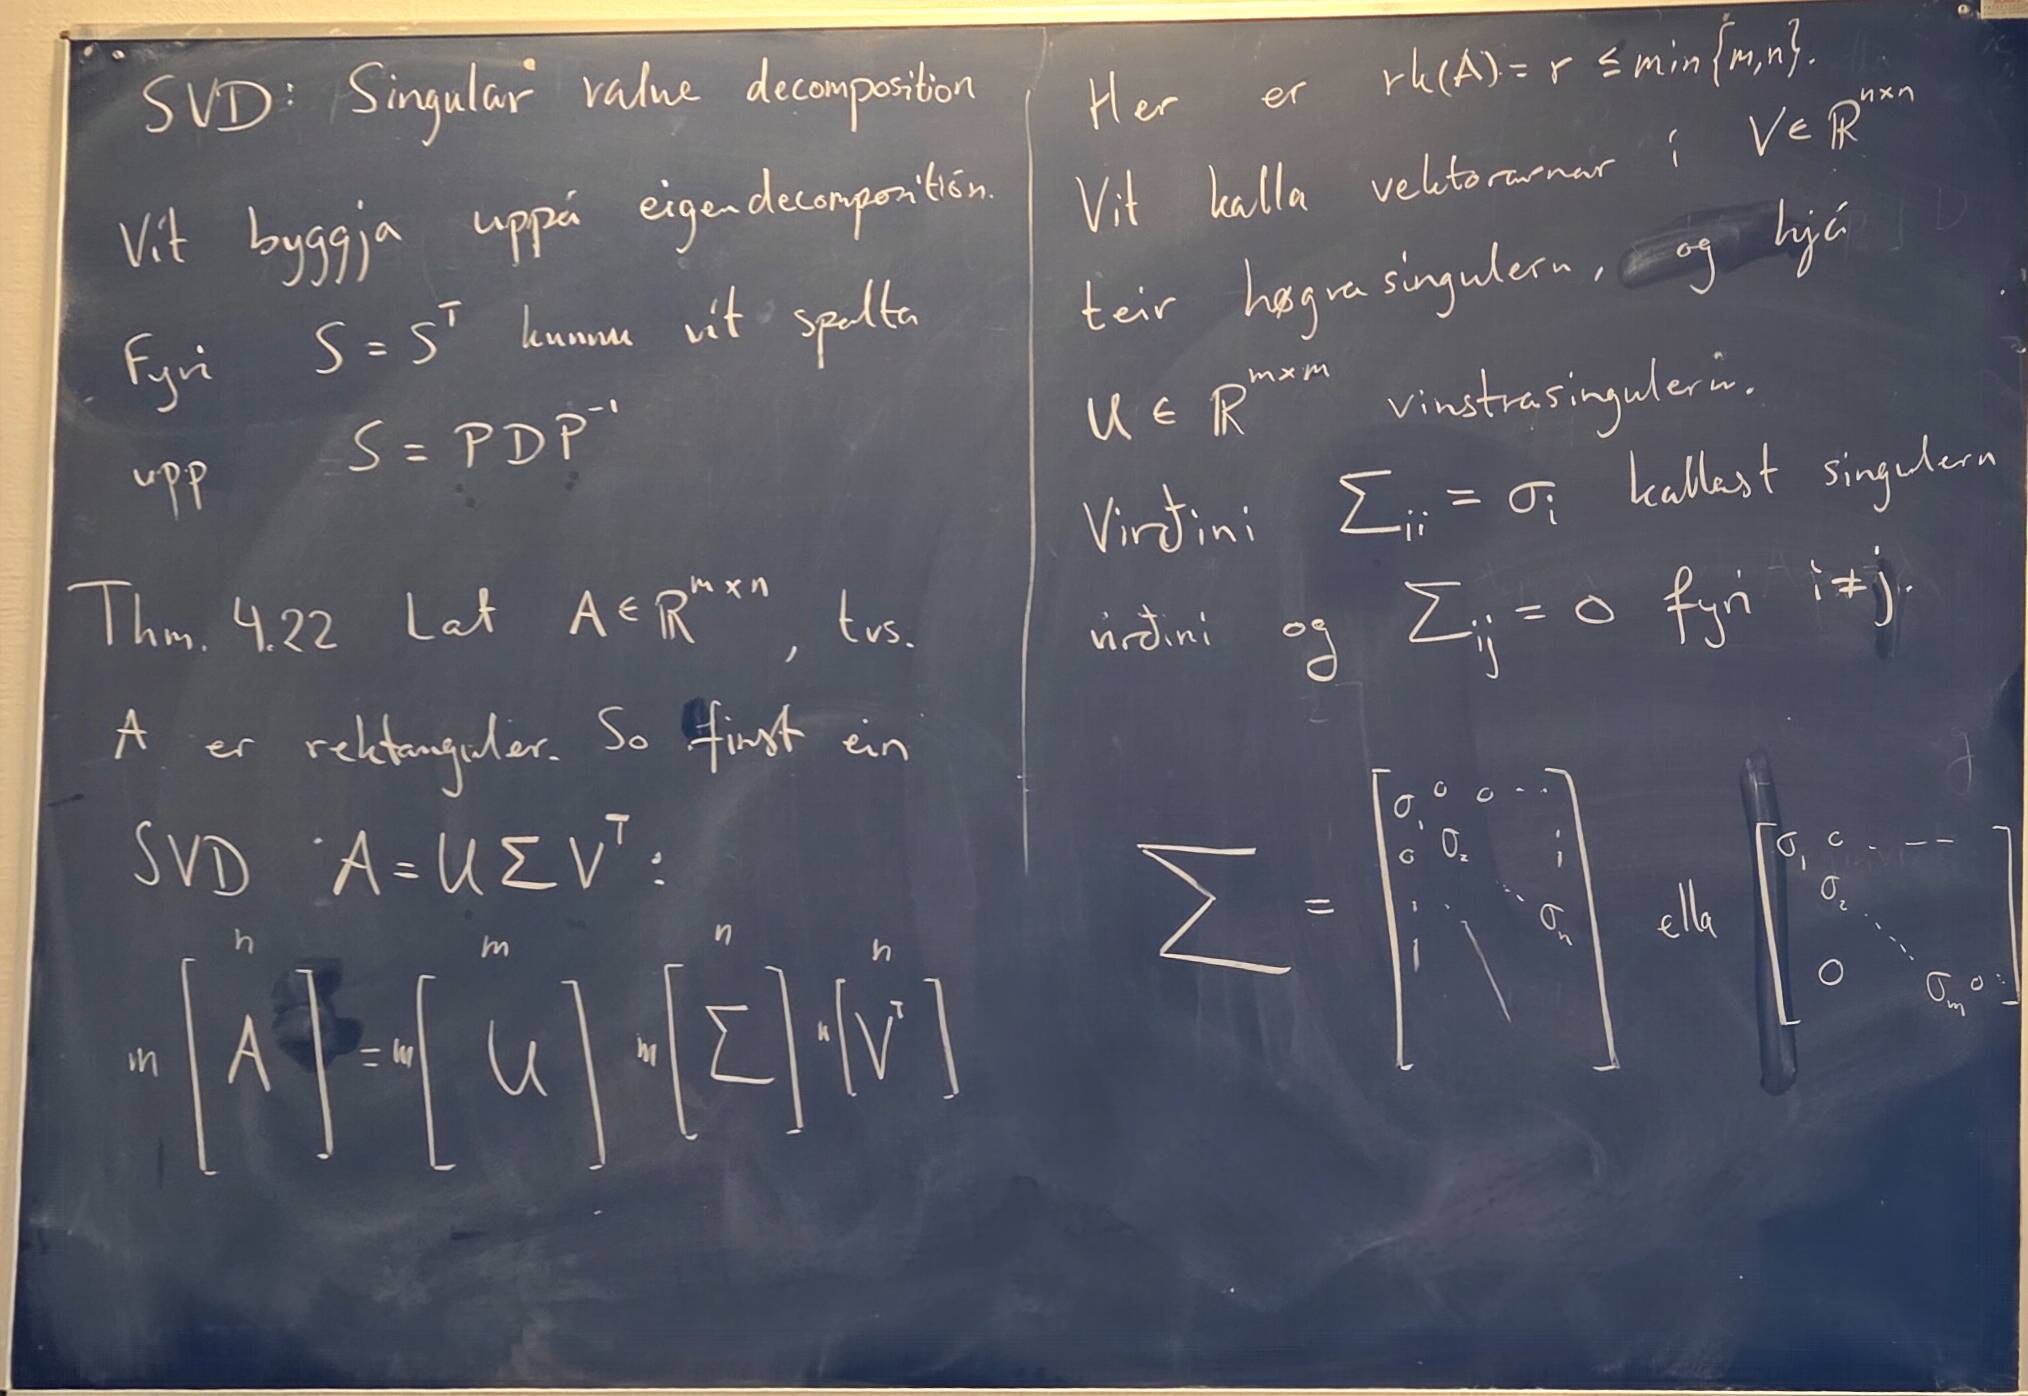 SVD: Singular value decomposition
Vit byggja uppá eigendecomposition.
Fyri S = Sᵀ kunnu vit spalta
upp S = PDP⁻¹
Thm. 4.22 Lat A ∈ ℝᵐˣⁿ, tvs.
A er rektanguler. So finst ein
SVD A = U Σ Vᵀ:
n m n n
m [A] = m [U] m [Σ] n [Vᵀ]
Her er rk(A) = r ≤ min{m,n}.
Vit kalla vektorarnar í V ∈ ℝⁿˣⁿ
teir høgrasinguleru, og hjá
U ∈ ℝᵐˣᵐ vinstrasinguleru.
Virðini Σᵢᵢ = σᵢ kallast singuleru
virðini og Σᵢⱼ = 0 fyri i ≠ j.
Σ = [σ₁ 0 0 ⋯ 0 σ₂ ⋱ σₙ] ella [σ₁ 0 ⋯ σ₂ ⋱ 0 σₘ 0 ⋯]